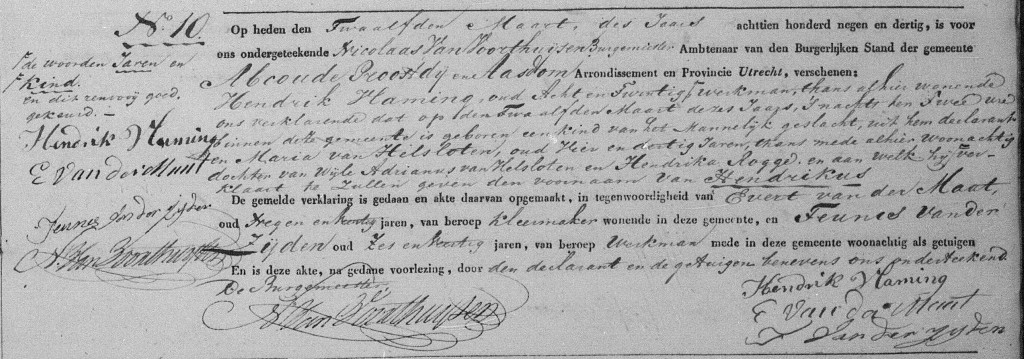 No. 10.
de woorden Jaren en
kind.
en dit renvooij goed-
gekeurd. –
Hendrik Haming
E Van der Maat
Teunes van der Zyden
Op heden den Twaalfden Maart, des Jaars achttien honderd negen en dertig, is voor
ons ondergeteekende Nicolaas Van Voorthuisen Burgemeester Ambtenaar van den Burgerlijken Stand der gemeente
Abcoude Proostdy en Aasdom, Arrondissement en Provincie Utrecht, verschenen:
Hendrik Haming, oud Acht en Twintig, werkman, thans alhier wonende
ons verklarende dat op den Twaalfden Maart dezes Jaars, s'nachts ten Twee ure
binnen deze gemeente is geboren een kind van het Mannelijk geslacht, uit hem declarant
en Maria van Helsloten, oud Vier en dertig Jaren, thans mede alhier woonachtig
dochter van Wyle Adrianus van Helsloten en Hendrika Rogge, en aan welk hij ver-
klaart te zullen geven den voornaam van Hendrikus
De gemelde verklaring is gedaan en akte daarvan opgemaakt, in tegenwoordigheid van Evert van der Maat,
oud Negen en jaren, van beroep Kleermaker wonende in deze gemeente, en Teunes van der
Zijden oud Zes en jaren, van beroep Werkman mede in deze gemeente woonachtig als getuigen
En is deze akte, na gedane voorlezing, door den declarant en de getuigen benevens ons onderteekend.
De Burgemeester.
Hendrik Haming
E Van der Maat
T Van der Zyden